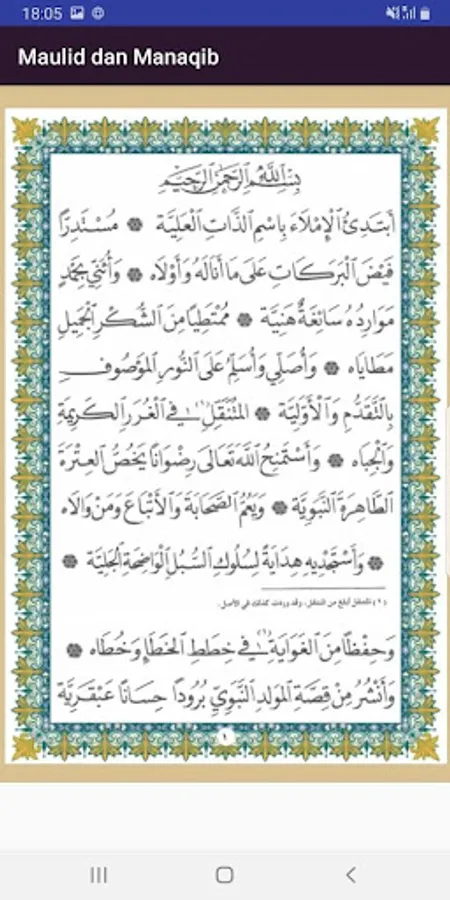 18:05
Maulid dan Manaqib
بِسْمِ اللَّهِ الرَّحْمَٰنِ الرَّحِيمِ
أَبْتَدِئُ الْإِمْلَاءَ بِاسْمِ الذَّاتِ الْعَلِيَّةِ ۞ مُسْتَدِرًّا
فَيْضَ الْبَرَكَاتِ عَلَى مَا أَنَالَهُ وَأَوْلَاهُ ۞ وَأُثَنِّي بِحَمْدٍ
مَوَارِدُهُ سَائِغَةٌ هَنِيَّةٌ ۞ مُمْتَطِيًا مِنَ الشُّكْرِ الْجَمِيلِ
مَطَايَاهُ ۞ وَأُصَلِّي وَأُسَلِّمُ عَلَى النُّورِ الْمَوْصُوفِ
بِالتَّقَدُّمِ وَالْأَوَّلِيَّةِ ۞ الْمُتَنَقِّلِ(١) فِي الْغُرَرِ الْكَرِيمَةِ
وَالْجِبَاهِ ۞ وَأَسْتَمْنِحُ اللَّهَ تَعَالَى رِضْوَانًا يَخُصُّ الْعِتْرَةَ
الطَّاهِرَةَ النَّبَوِيَّةَ ۞ وَيَعُمُّ الصَّحَابَةَ وَالْأَتْبَاعَ وَمَنْ وَالَاهُ
۞ وَأَسْتَجْدِيهِ هِدَايَةً لِسُلُوكِ السُّبُلِ الْوَاضِحَةِ الْجَلِيَّةِ ۞
(١) المتنقل أبلغ من المنتقل، وقد وردت كذلك في الأصل.
وَحِفْظًا مِنَ الْغَوَايَةِ فِي خِطَطِ الْخَطَإِ وَخُطَاهُ ۞
وَأَنْشُرُ مِنْ قِصَّةِ الْمَوْلِدِ النَّبَوِيِّ بُرُودًا حِسَانًا عَبْقَرِيَّةً
١